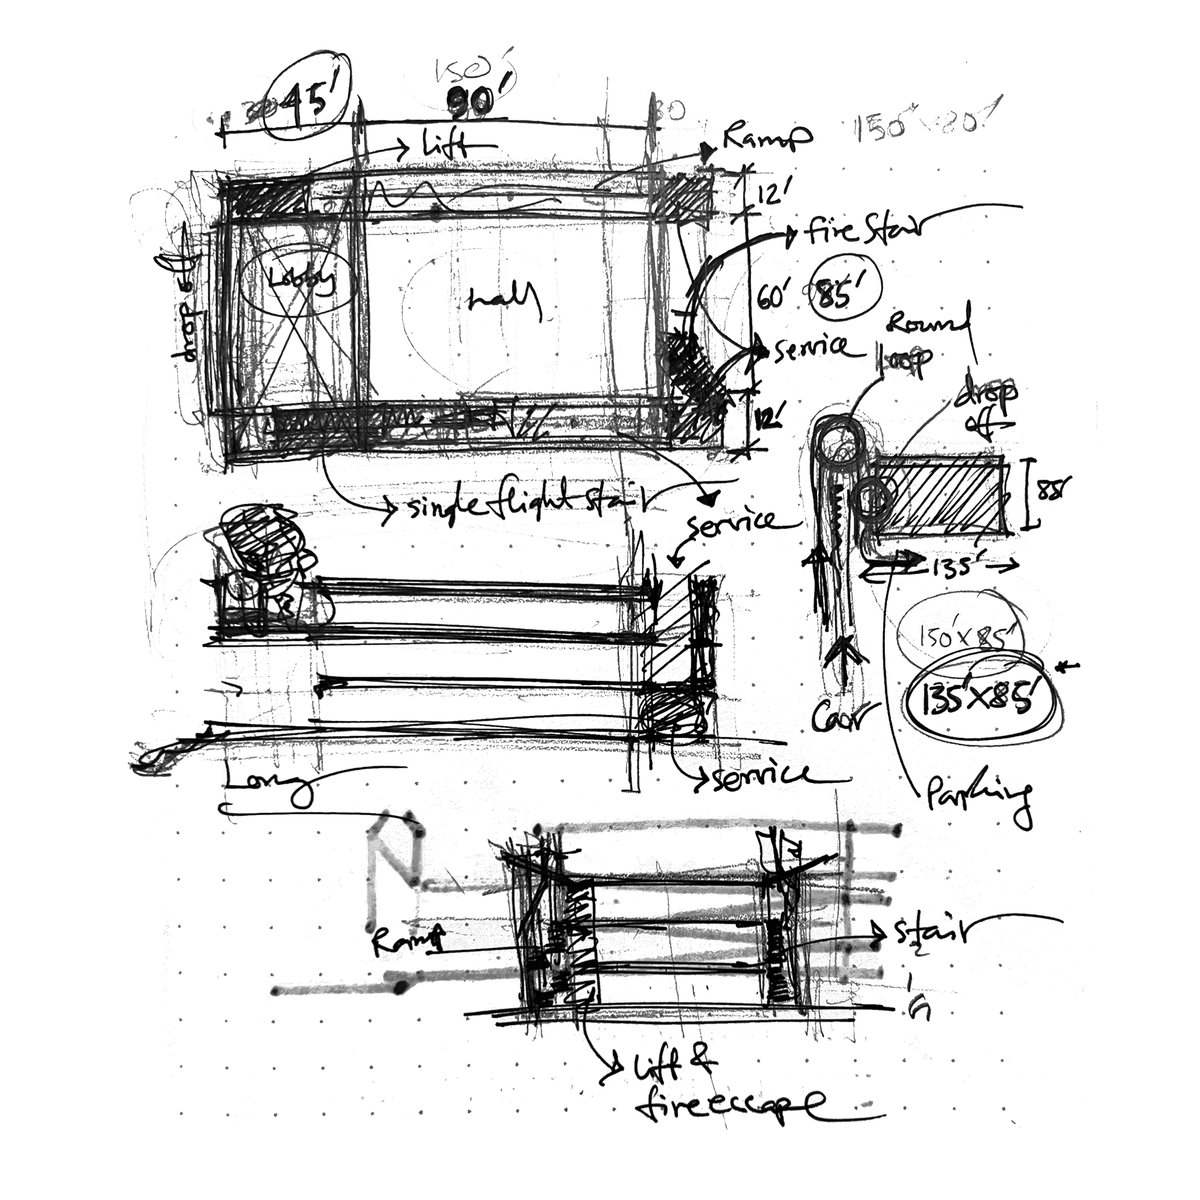 150'
45'
90'
30
Lift
Ramp
150' x 80'
12'
fire stair
drop off
Lobby
hall
60'
85'
service
Round
loop
drop
off
12'
85'
single flight stair
service
135'
150' x 85'
135' x 85'
Car
service
Long
Parking
Ramp
stair
Lift &
fire escape